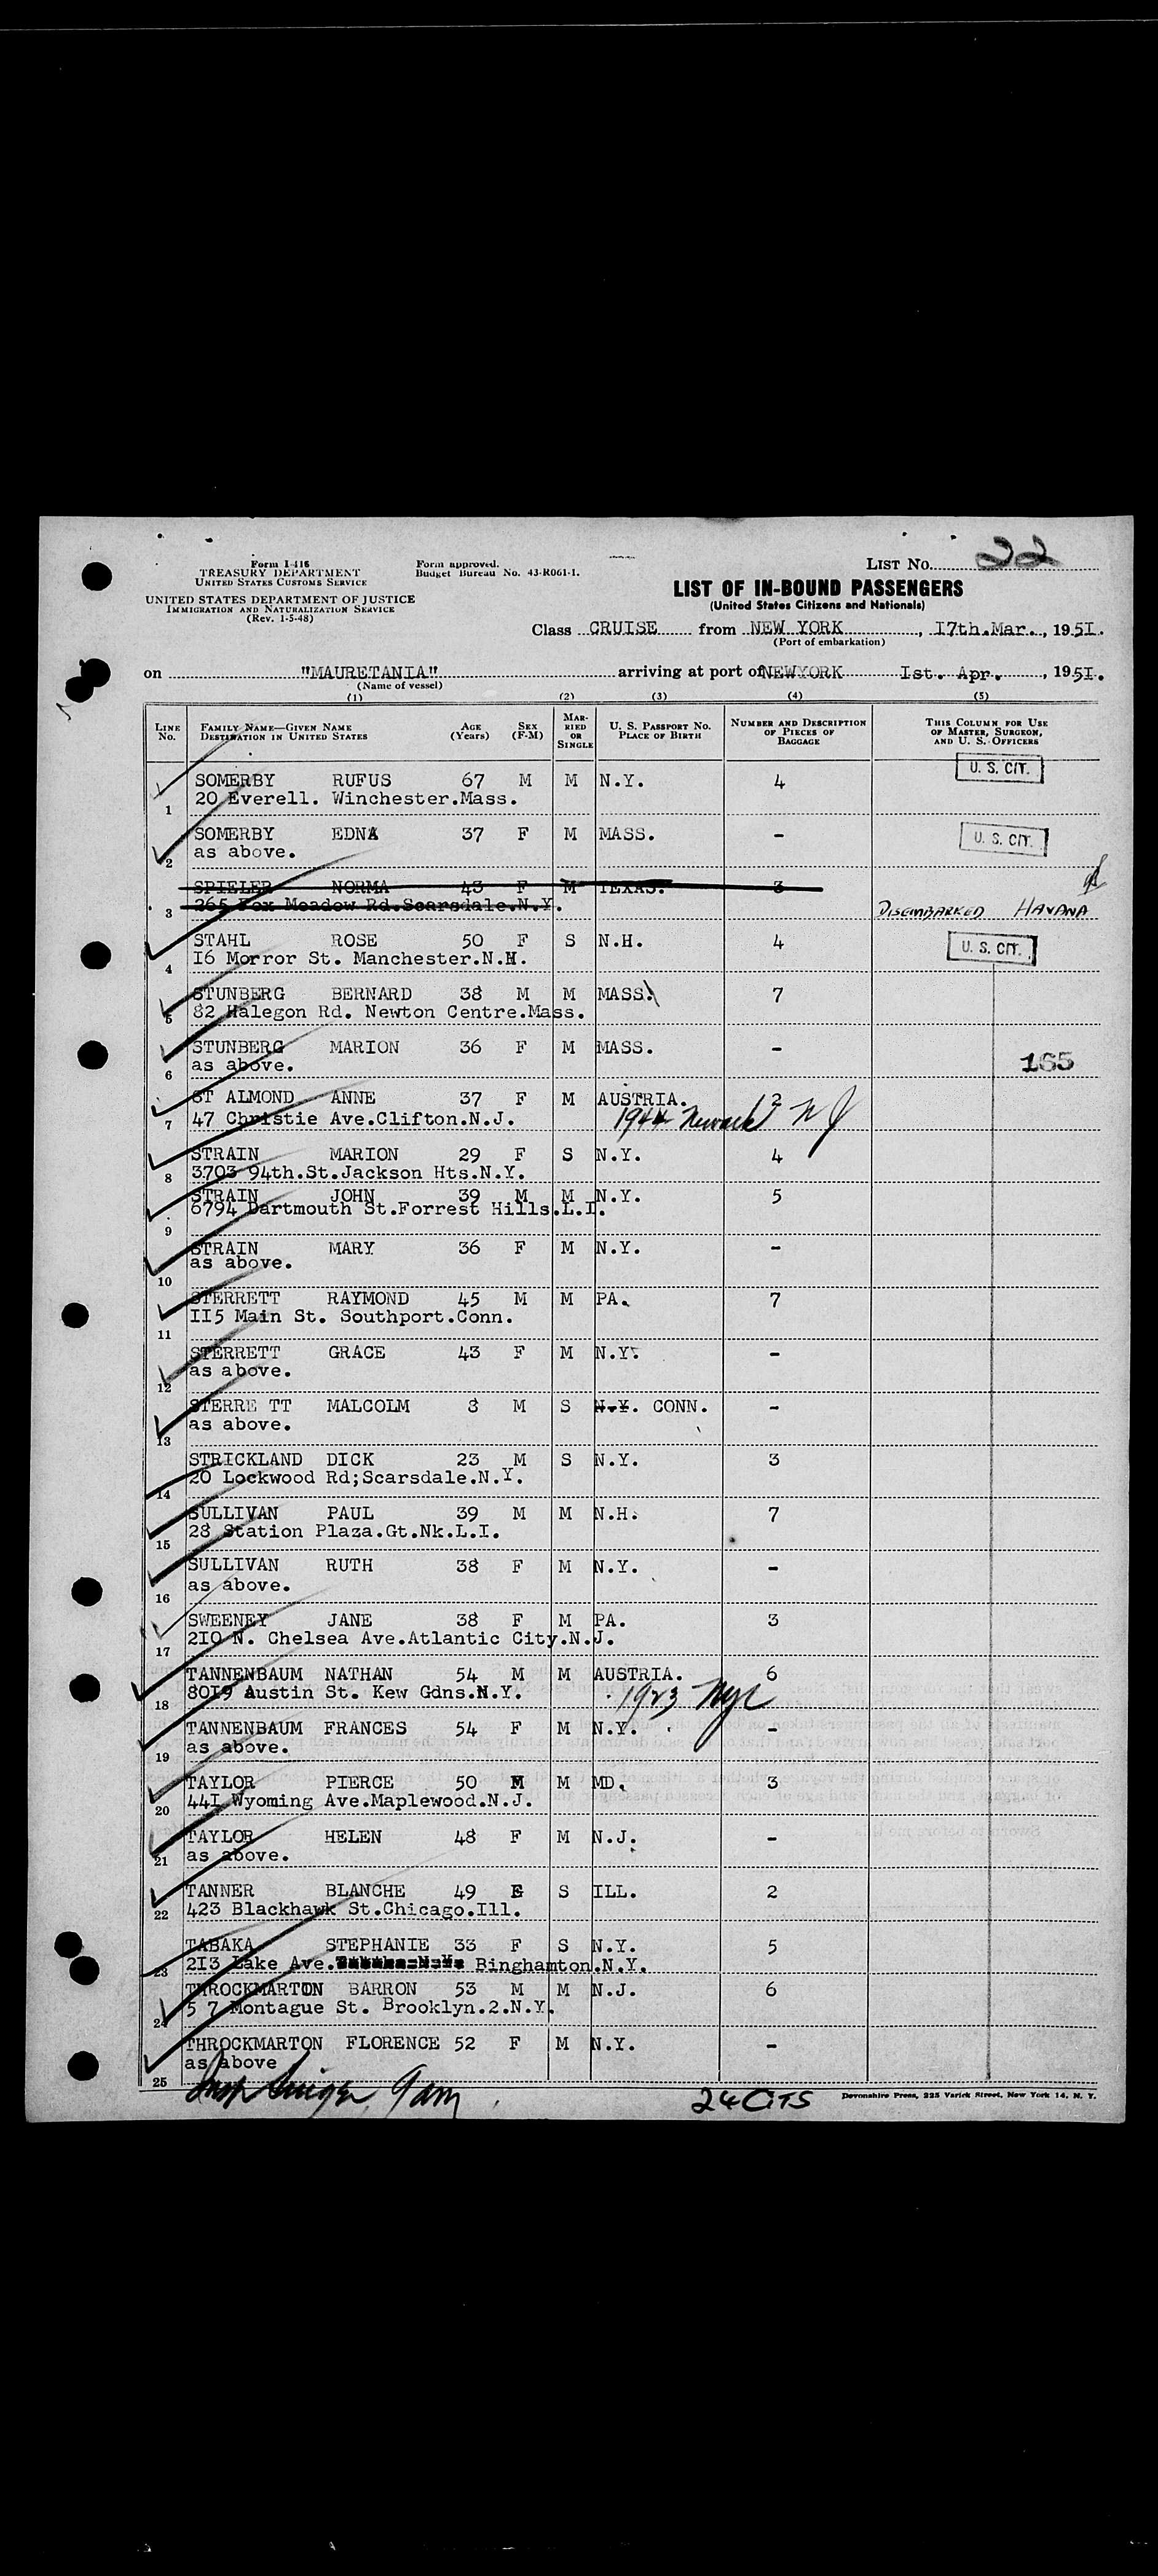 Form I-416
TREASURY DEPARTMENT
UNITED STATES CUSTOMS SERVICE
UNITED STATES DEPARTMENT OF JUSTICE
IMMIGRATION AND NATURALIZATION SERVICE
(Rev. 1-5-48)
Form approved.
Budget Bureau No. 43-R061-1.
LIST No. 22
LIST OF IN-BOUND PASSENGERS
(United States Citizens and Nationals)
Class CRUISE from NEW YORK, I7th.Mar., 1951.
(Port of embarkation)
on "MAURETANIA" arriving at port of NEWYORK Ist. Apr., 1951.
(Name of vessel)
(1) (2) (3) (4) (5)
LINE No. FAMILY NAME—GIVEN NAME DESTINATION IN UNITED STATES AGE (Years) SEX (F-M) MARRIED OR SINGLE U. S. PASSPORT NO. PLACE OF BIRTH NUMBER AND DESCRIPTION OF PIECES OF BAGGAGE THIS COLUMN FOR USE OF MASTER, SURGEON, AND U. S. OFFICERS
1 SOMERBY RUFUS 67 M M N.Y. 4 U. S. CIT.
20 Everell. Winchester.Mass.
2 SOMERBY EDNA 37 F M MASS. - U. S. CIT.
as above.
3 SPIELER NORMA 43 F M TEXAS. 3
265 Fox Meadow Rd.Scarsdale.N.Y. DISEMBARKED HAVANA
4 STAHL ROSE 50 F S N.H. 4 U. S. CIT.
I6 Morror St. Manchester.N.H.
5 STUNBERG BERNARD 38 M M MASS. 7
82 Halegon Rd. Newton Centre.Mass.
6 STUNBERG MARION 36 F M MASS. - 165
as above.
7 ST ALMOND ANNE 37 F M AUSTRIA. 2
47 Christie Ave.Clifton.N.J. 1944 Newark N J
8 STRAIN MARION 29 F S N.Y. 4
3703 94th.St.Jackson Hts.N.Y.
9 STRAIN JOHN 39 M M N.Y. 5
6794 Dartmouth St.Forrest Hills.L.I.
10 STRAIN MARY 36 F M N.Y. -
as above.
11 STERRETT RAYMOND 45 M M PA. 7
II5 Main St. Southport.Conn.
12 STERRETT GRACE 43 F M N.Y. -
as above.
13 STERRE TT MALCOLM 3 M S N.Y. CONN. -
as above.
14 STRICKLAND DICK 23 M S N.Y. 3
20 Lockwood Rd;Scarsdale.N.Y.
15 SULLIVAN PAUL 39 M M N.H. 7
28 Station Plaza.Gt.Nk.L.I.
16 SULLIVAN RUTH 38 F M N.Y. -
as above.
17 SWEENEY JANE 38 F M PA. 3
2I0 N. Chelsea Ave.Atlantic City.N.J.
18 TANNENBAUM NATHAN 54 M M AUSTRIA. 6
80I9 Austin St. Kew Gdns.N.Y. 1923 Nyc
19 TANNENBAUM FRANCES 54 F M N.Y. -
as above.
20 TAYLOR PIERCE 50 M M MD. 3
44I Wyoming Ave.Maplewood.N.J.
21 TAYLOR HELEN 48 F M N.J. -
as above.
22 TANNER BLANCHE 49 F S ILL. 2
423 Blackhawk St.Chicago.Ill.
23 TABAKA STEPHANIE 33 F S N.Y. 5
2I3 Lake Ave. Binghamton.N.Y.
24 THROCKMARTON BARRON 53 M M N.J. 6
5 7 Montague St. Brooklyn.2.N.Y.
25 THROCKMARTON FLORENCE 52 F M N.Y. -
as above
24 CITS
Devonshire Press, 225 Varick Street, New York 14, N. Y.